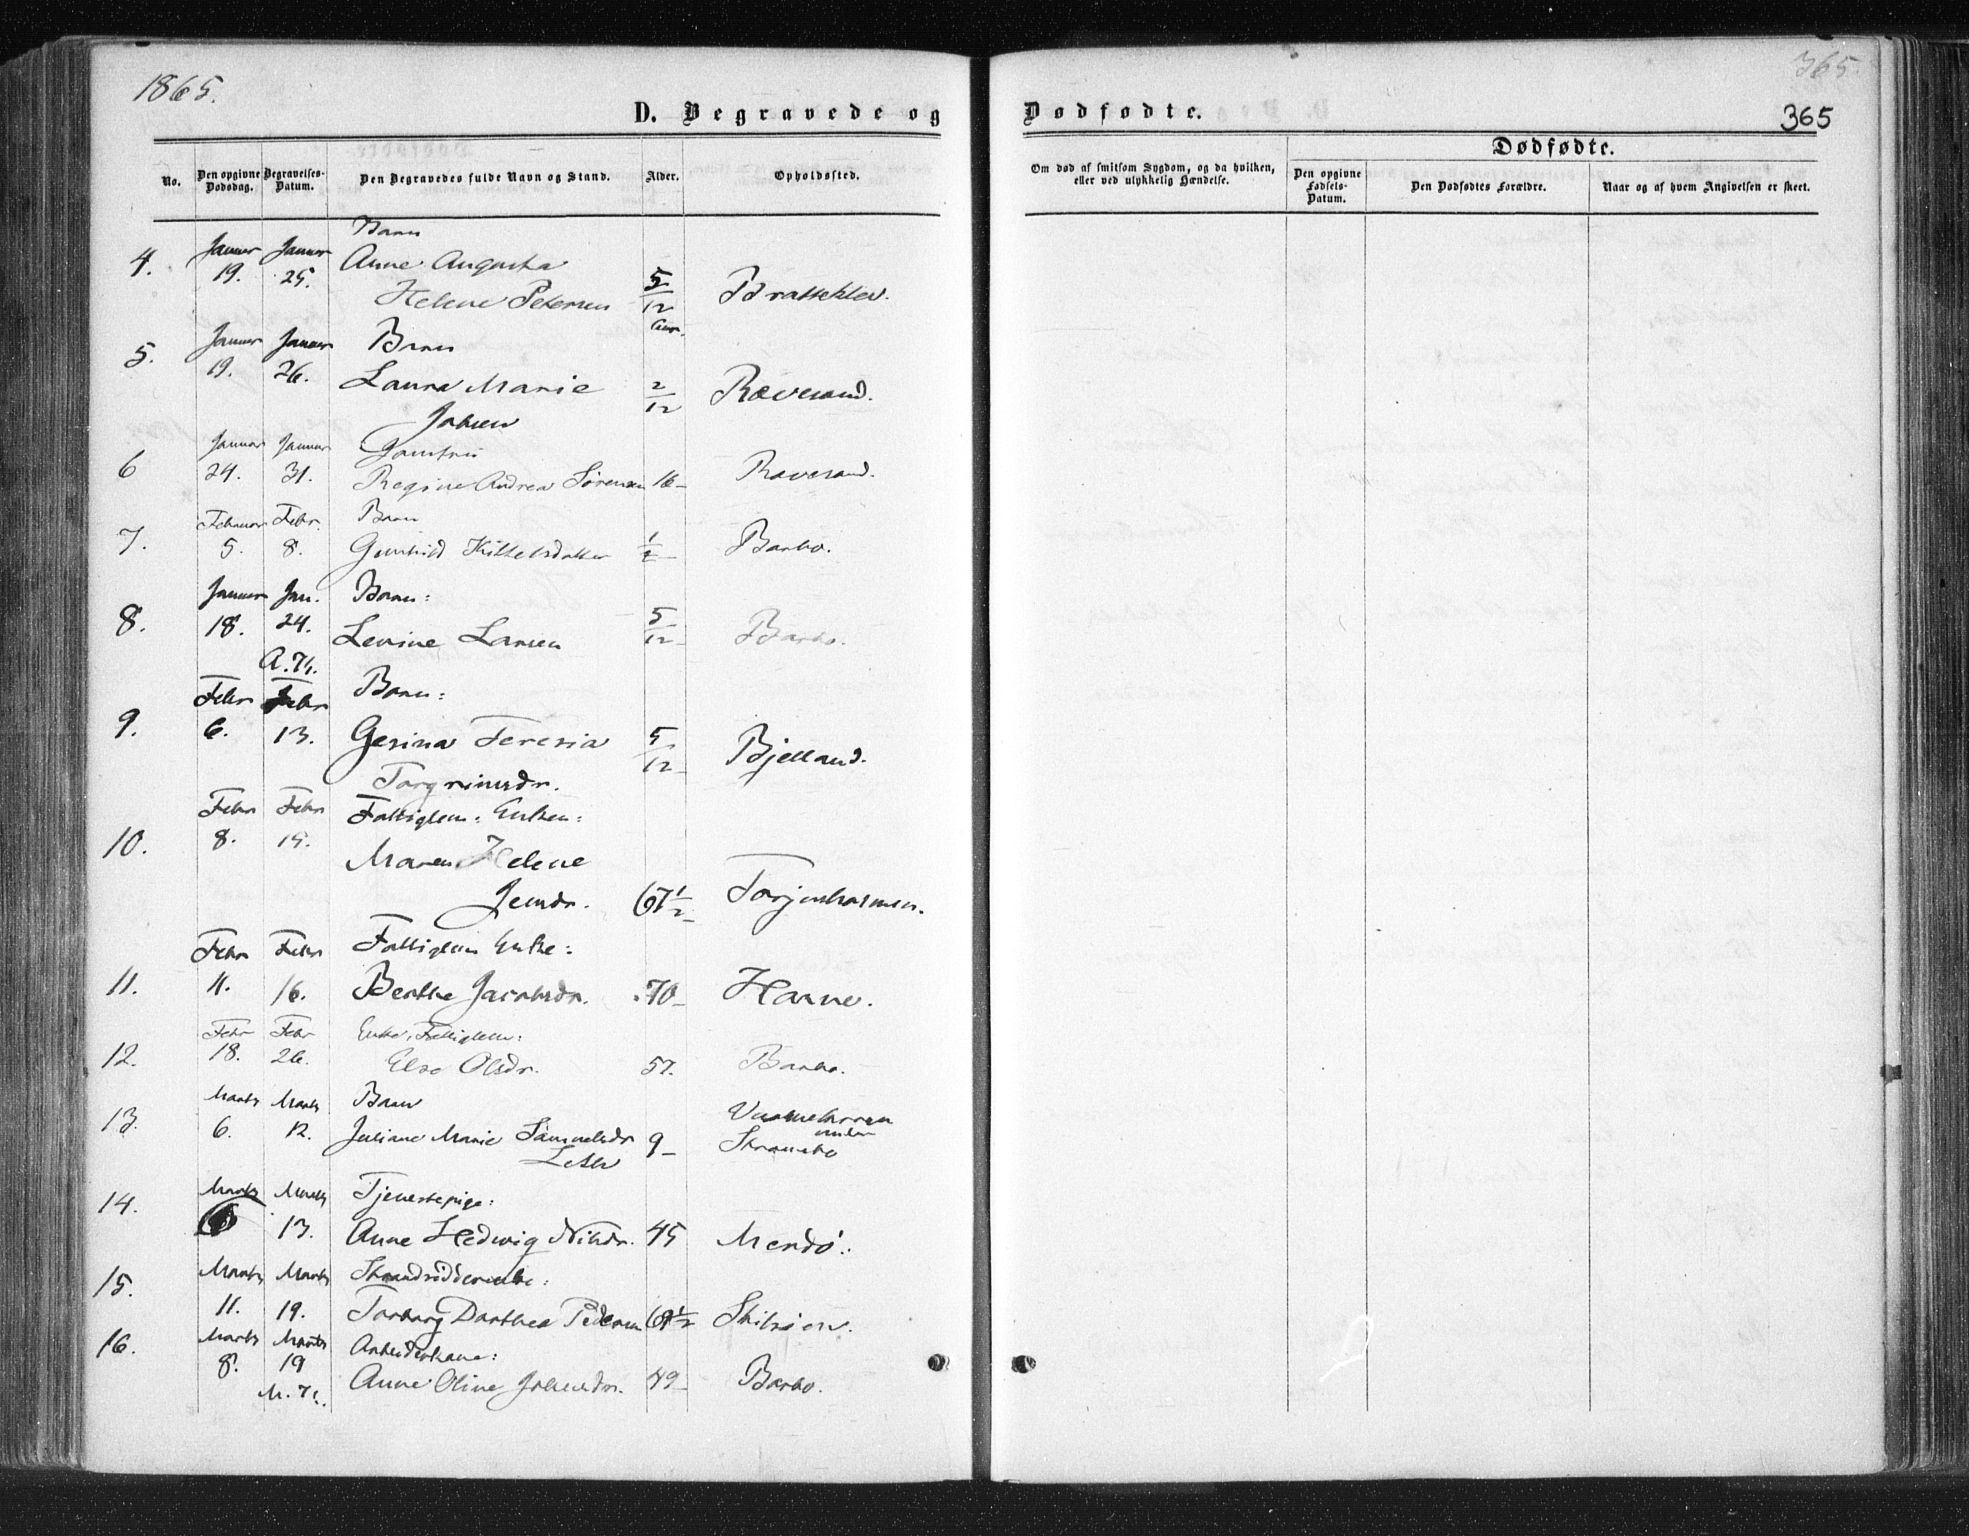 1865.
365.
D. Begravede og Dødfødte.
365
Dødfødte.
No.
Den opgivne Dødsdag.
Begravelses-Datum.
Den Begravedes fulde Navn og Stand.
Alder.
Opholdssted.
Om død af smitsom Sygdom, og da hvilken, eller ved ulykkelig Hændelse.
Den opgivne Fødsels-Datum.
Den Dødfødtes Forældre.
Naar og af hvem Angivelsen er skeet.
Januar Januar Barn
4. 19. 25. Anne Augusta
Helene Petersen 5/12 Brattekler.
Januar Januar Barn
5. 19. 26. Laura Marie 2/12 Rævesand.
Januar Januar
6 24. 31. Regine Andrea Sørensen 16 Ravesand.
Februar Febr. Barn
7. 5. 8. Gunhild Kittelsdatter Barbo.
Januar Jan. Barn:
8. 18. 24. Levine Larsen 5/12 Barbo.
Febr Febr Barn:
9. 6. 13. Gesina Teresia 5/12 Bjelland.
Torgrimsdr.
Febr Febr Fattiglem: Enken:
10. 8. 15. Maren Helene
Jensdr. 67 1/2
Febr Febr Fattiglem Enke:
11. 11. 16. Berthe Jacobsdr. 70 Hasne.
Febr Febr Enke, Fattiglem:
12. 18. 26. Else Olsdr. 57. Barbo.
Marts Marts Barn
13. 6. 12. Juliane Marie Samuelsdr 9
Marts Marts Tjenestepige:
14. 13. Anne Hedwig Nilsdr. 45 Merdø.
Marts Marts
15. 11. 19. Torborg Dorthea Pedersen Skilsøen.
Marts Marts Arbeiderkone:
16. 8. 19 Anne Oline 49 Barbo.